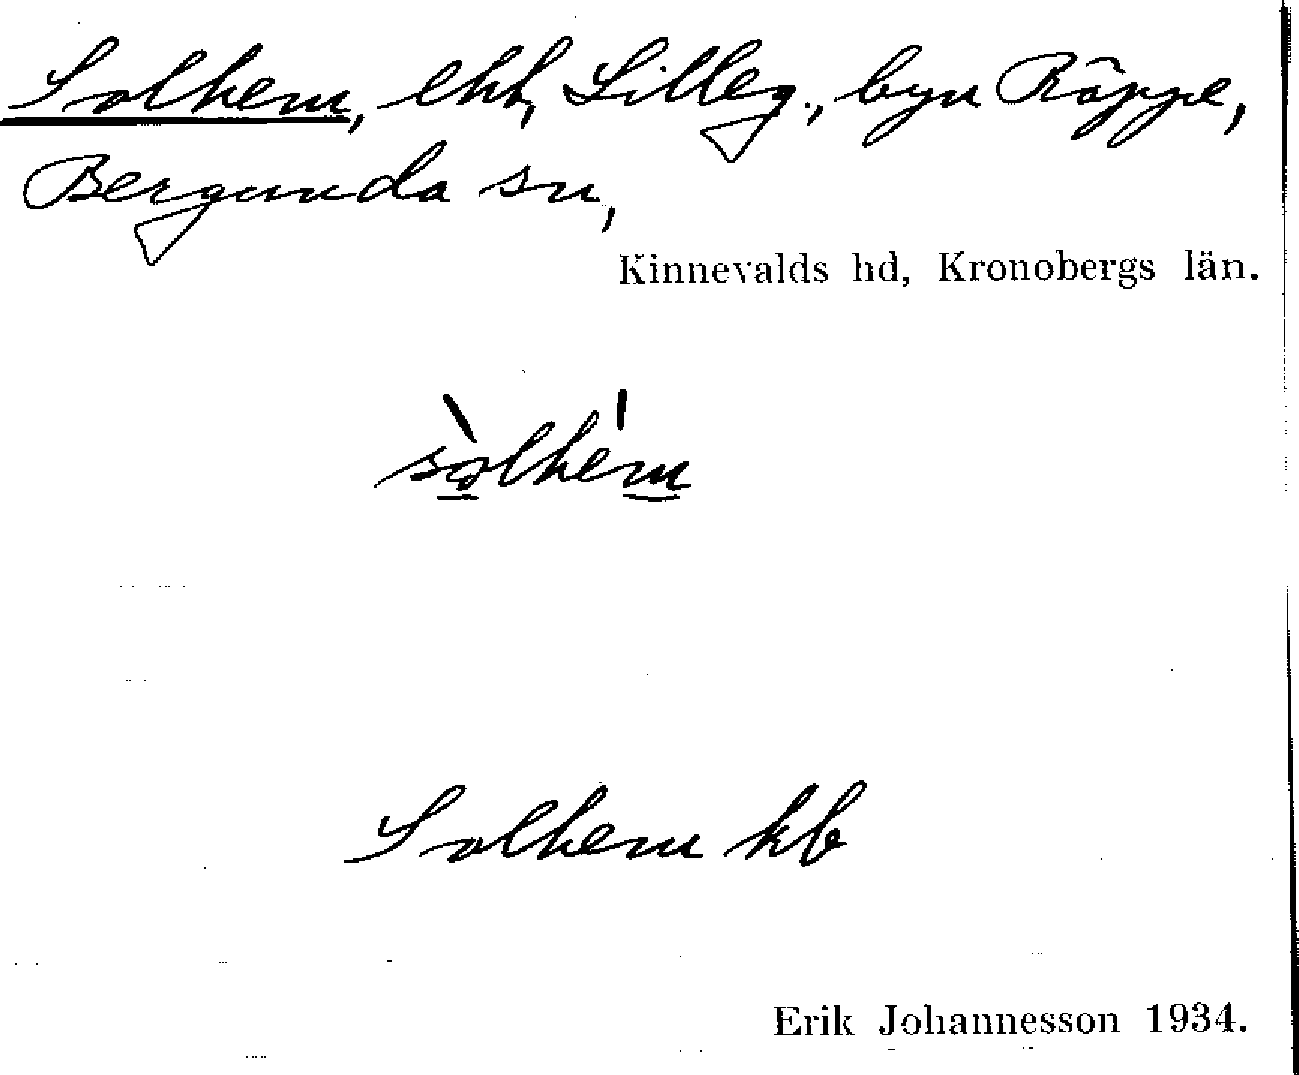 Solhem, eht, Lilleg., byn Räppe,
Bergunda sn,
Kinnevalds hd, Kronobergs län.
sòlhém
Solhem kb
Erik Johannesson 1934.